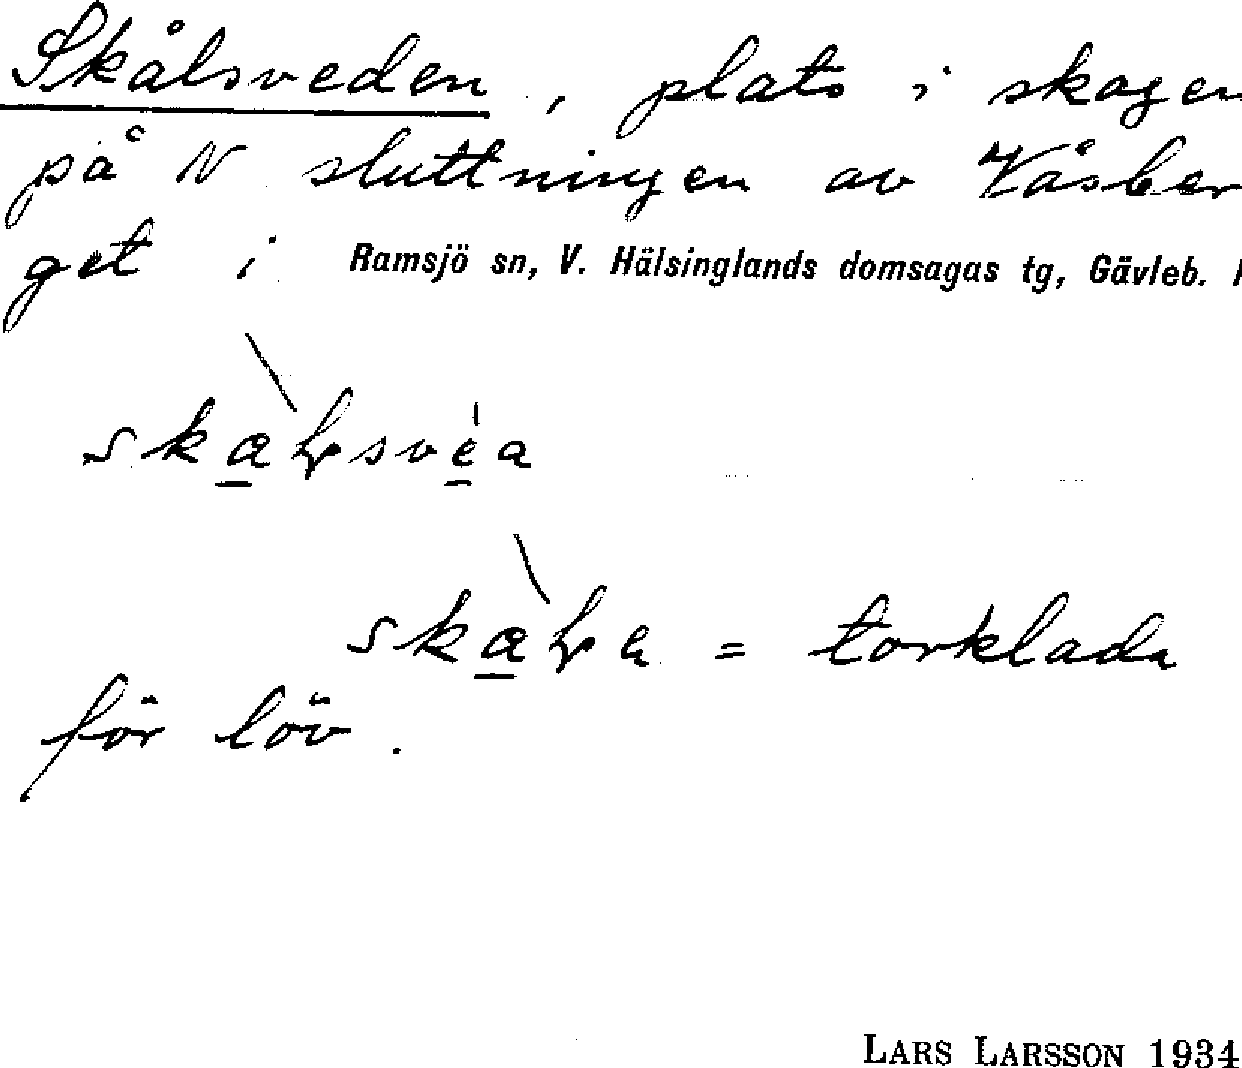 Skålsveden, plats i skogen
på N sluttningen av Våsber
get i Ramsjö sn, V. Hälsinglands domsagas tg, Gävleb.
= torklada
för löv.
LARS LARSSON 1934